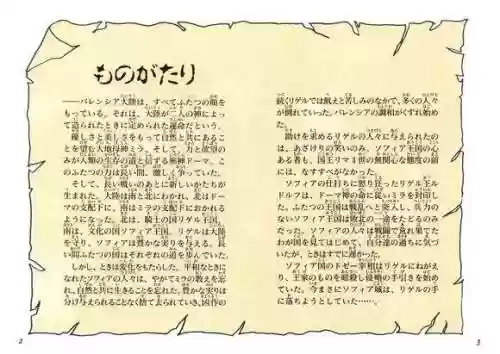 ものがたり
――バレンシア大陸は、すべてふたつの顔を
もっている。それは、大陸が二人の神によっ
て造られたときに定められた運命だという。
優しさと美しさをもって自然と共にあるこ
とを望む大地母神ミラ。そして、力と欲望の
みが人類の生存の道と信ずる邪神ドーマ。こ
のふたつの力は長い間、激しく争っていた。
そして、長い戦いのあとに新しいかたちが
生まれた。大陸は南と北にわかれ、北はドー
マの支配下に、南はミラの支配下におかれる
ようになった。北は、騎士の国リゲル王国。
南は、文化の国ソフィア王国。リゲルは大陸
を守り、ソフィアは豊かな実りを与える。長
い間ふたつの国はそれぞれの道を歩んでいた。
しかし、ときは変化をもたらした。平和なときに
なれたソフィアの人々は、やがてミラの教えを忘
れ、自然と共に生きることを忘れた。豊かな実りは
分け与えられることなく捨て去られていき、凶作の
続くリゲルでは飢えと苦しみのなかで、多くの人々
が倒れていった。バレンシアの調和がくずれ始め
た。
助けを求めるリゲルの人々に与えられたの
は、あざけりの笑いのみ。ソフィア王国の心
ある者も、国王リマ四世の無関心な態度の前
には、なすすべがなかった。
ソフィアの仕打ちに怒り狂ったリゲル王ル
ドルフは、ドーマ神の命に従いミラを封印し
た。ふたつの王国は戦乱へと突入し、兵力の
ないソフィア王国は敗北の一途をたどるのみ
だった。ソフィアの人々は戦闘で荒れ果てた
わが国を見てはじめて、自分達の過ちに気づ
いたが、ときはすでに遅かった。
ソフィア王国のドゼー宰相はリゲルにねがえ
り、王家の人々を暗殺し侵略の手引きを始め
ていた。今まさにソフィア城は、リゲルの手
に落ちようとしていた……。
2
3